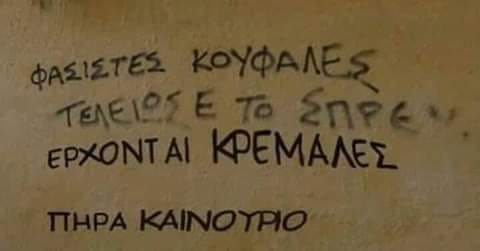 ΦΑΣΙΣΤΕΣ ΚΟΥΦΑΛΕΣ
ΤΕΛΕΙΩΣΕ ΤΟ ΣΠΡΕΥ..
ΕΡΧΟΝΤΑΙ ΚΡΕΜΑΛΕΣ
ΠΗΡΑ ΚΑΙΝΟΥΡΙΟ